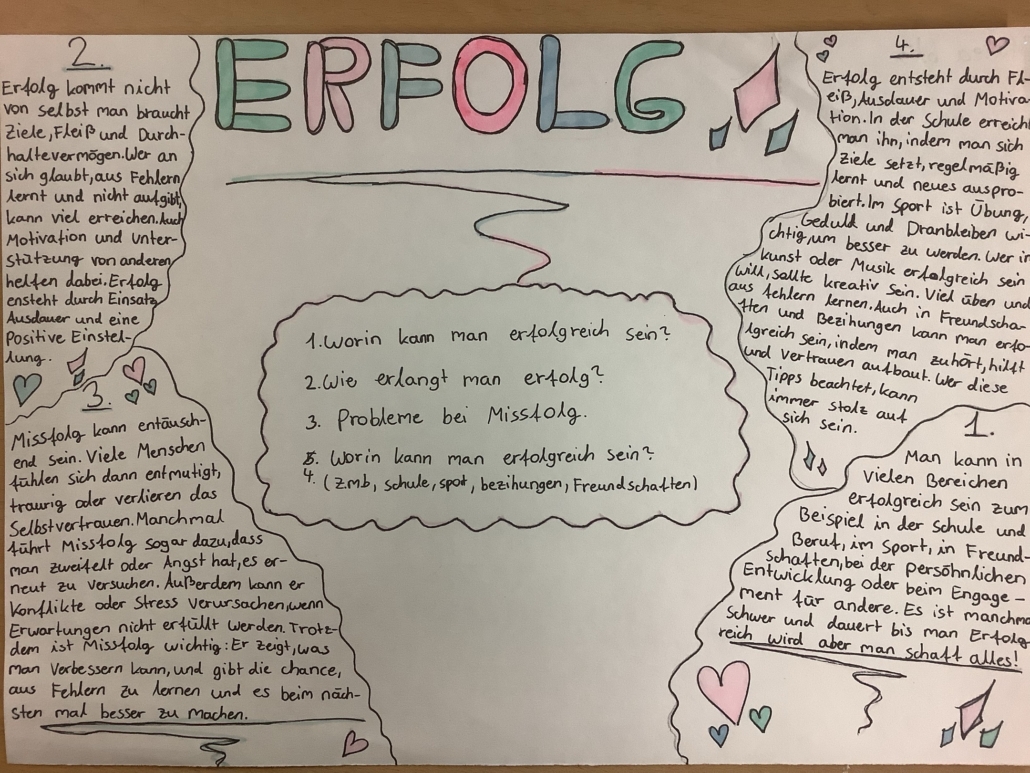 ERFOLG
1. Worin kann man erfolgreich sein?
2. Wie erlangt man erfolg?
3. Probleme bei Missfolg.
4. Worin kann man erfolgreich sein?
(z.m.b, schule, spot, bezihungen, Freundschaften)
1.
Man kann in
vielen Bereichen
erfolgreich sein zum
Beispiel in der Schule und
Beruf, im Sport, in Freund-
schaften, bei der persöhnlichen
Entwicklung oder beim Engage-
ment für andere. Es ist manchma
Schwer und dauert bis man Erfolg-
reich wird aber man schaft alles!
2.
Erfolg kommt nicht
von selbst man braucht
Ziele, Fleiß und Durch-
haltevermögen. Wer an
sich glaubt, aus Fehlern
lernt und nicht aufgibt,
kann viel erreichen. Auch
Motivation und Unter-
stützung von anderen
helfen dabei. Erfolg
ensteht durch Einsatz,
Ausdauer und eine
Positive Einstel-
lung.
3.
Missfolg kann entäusch-
end sein. Viele Menschen
fühlen sich dann entmutigt,
traurig oder verlieren das
Selbstvertrauen. Manchmal
führt Missfolg sogar dazu, dass
man zweifelt oder Angst hat, es er-
neut zu versuchen. Außerdem kann er
Konflikte oder Stress verursachen, wenn
Erwartungen nicht erfüllt werden. Trotz-
dem ist Missfolg wichtig: Er zeigt, was
man Verbessern kann, und gibt die chance,
aus Fehlern zu lernen und es beim näch-
sten mal besser zu machen.
4.
Erfolg entsteht durch Fl-
eiß, Ausdauer und Motiva-
tion. In der Schule erreicht
man ihn, indem man sich
Ziele setzt, regelmäßig
lernt und neues auspro-
biert. Im Sport ist Übung,
Geduld und Dranbleiben wi-
chtig, um besser zu werden. Wer in
kunst oder Musik erfolgreich sein
will, sollte kreativ sein. Viel üben und
aus fehlern lernen. Auch in Freundscha-
ften und Bezihungen kann man erfo-
lgreich sein, indem man zuhört, hilft
und Vertrauen aufbaut. Wer diese
Tipps beachtet, kann
immer stolz auf
sich sein.